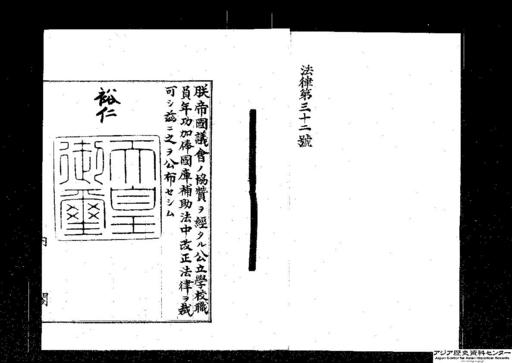 法律第三十二號
朕帝國議會ノ協贊ヲ經タル公立學校職
員年功加俸國庫補助法中改正法律ヲ裁
可シ玆ニ之ヲ公布セシム
裕仁
天皇
御璽
内閣
アジア歴史資料センター
Japan Center for Asian Historical Records